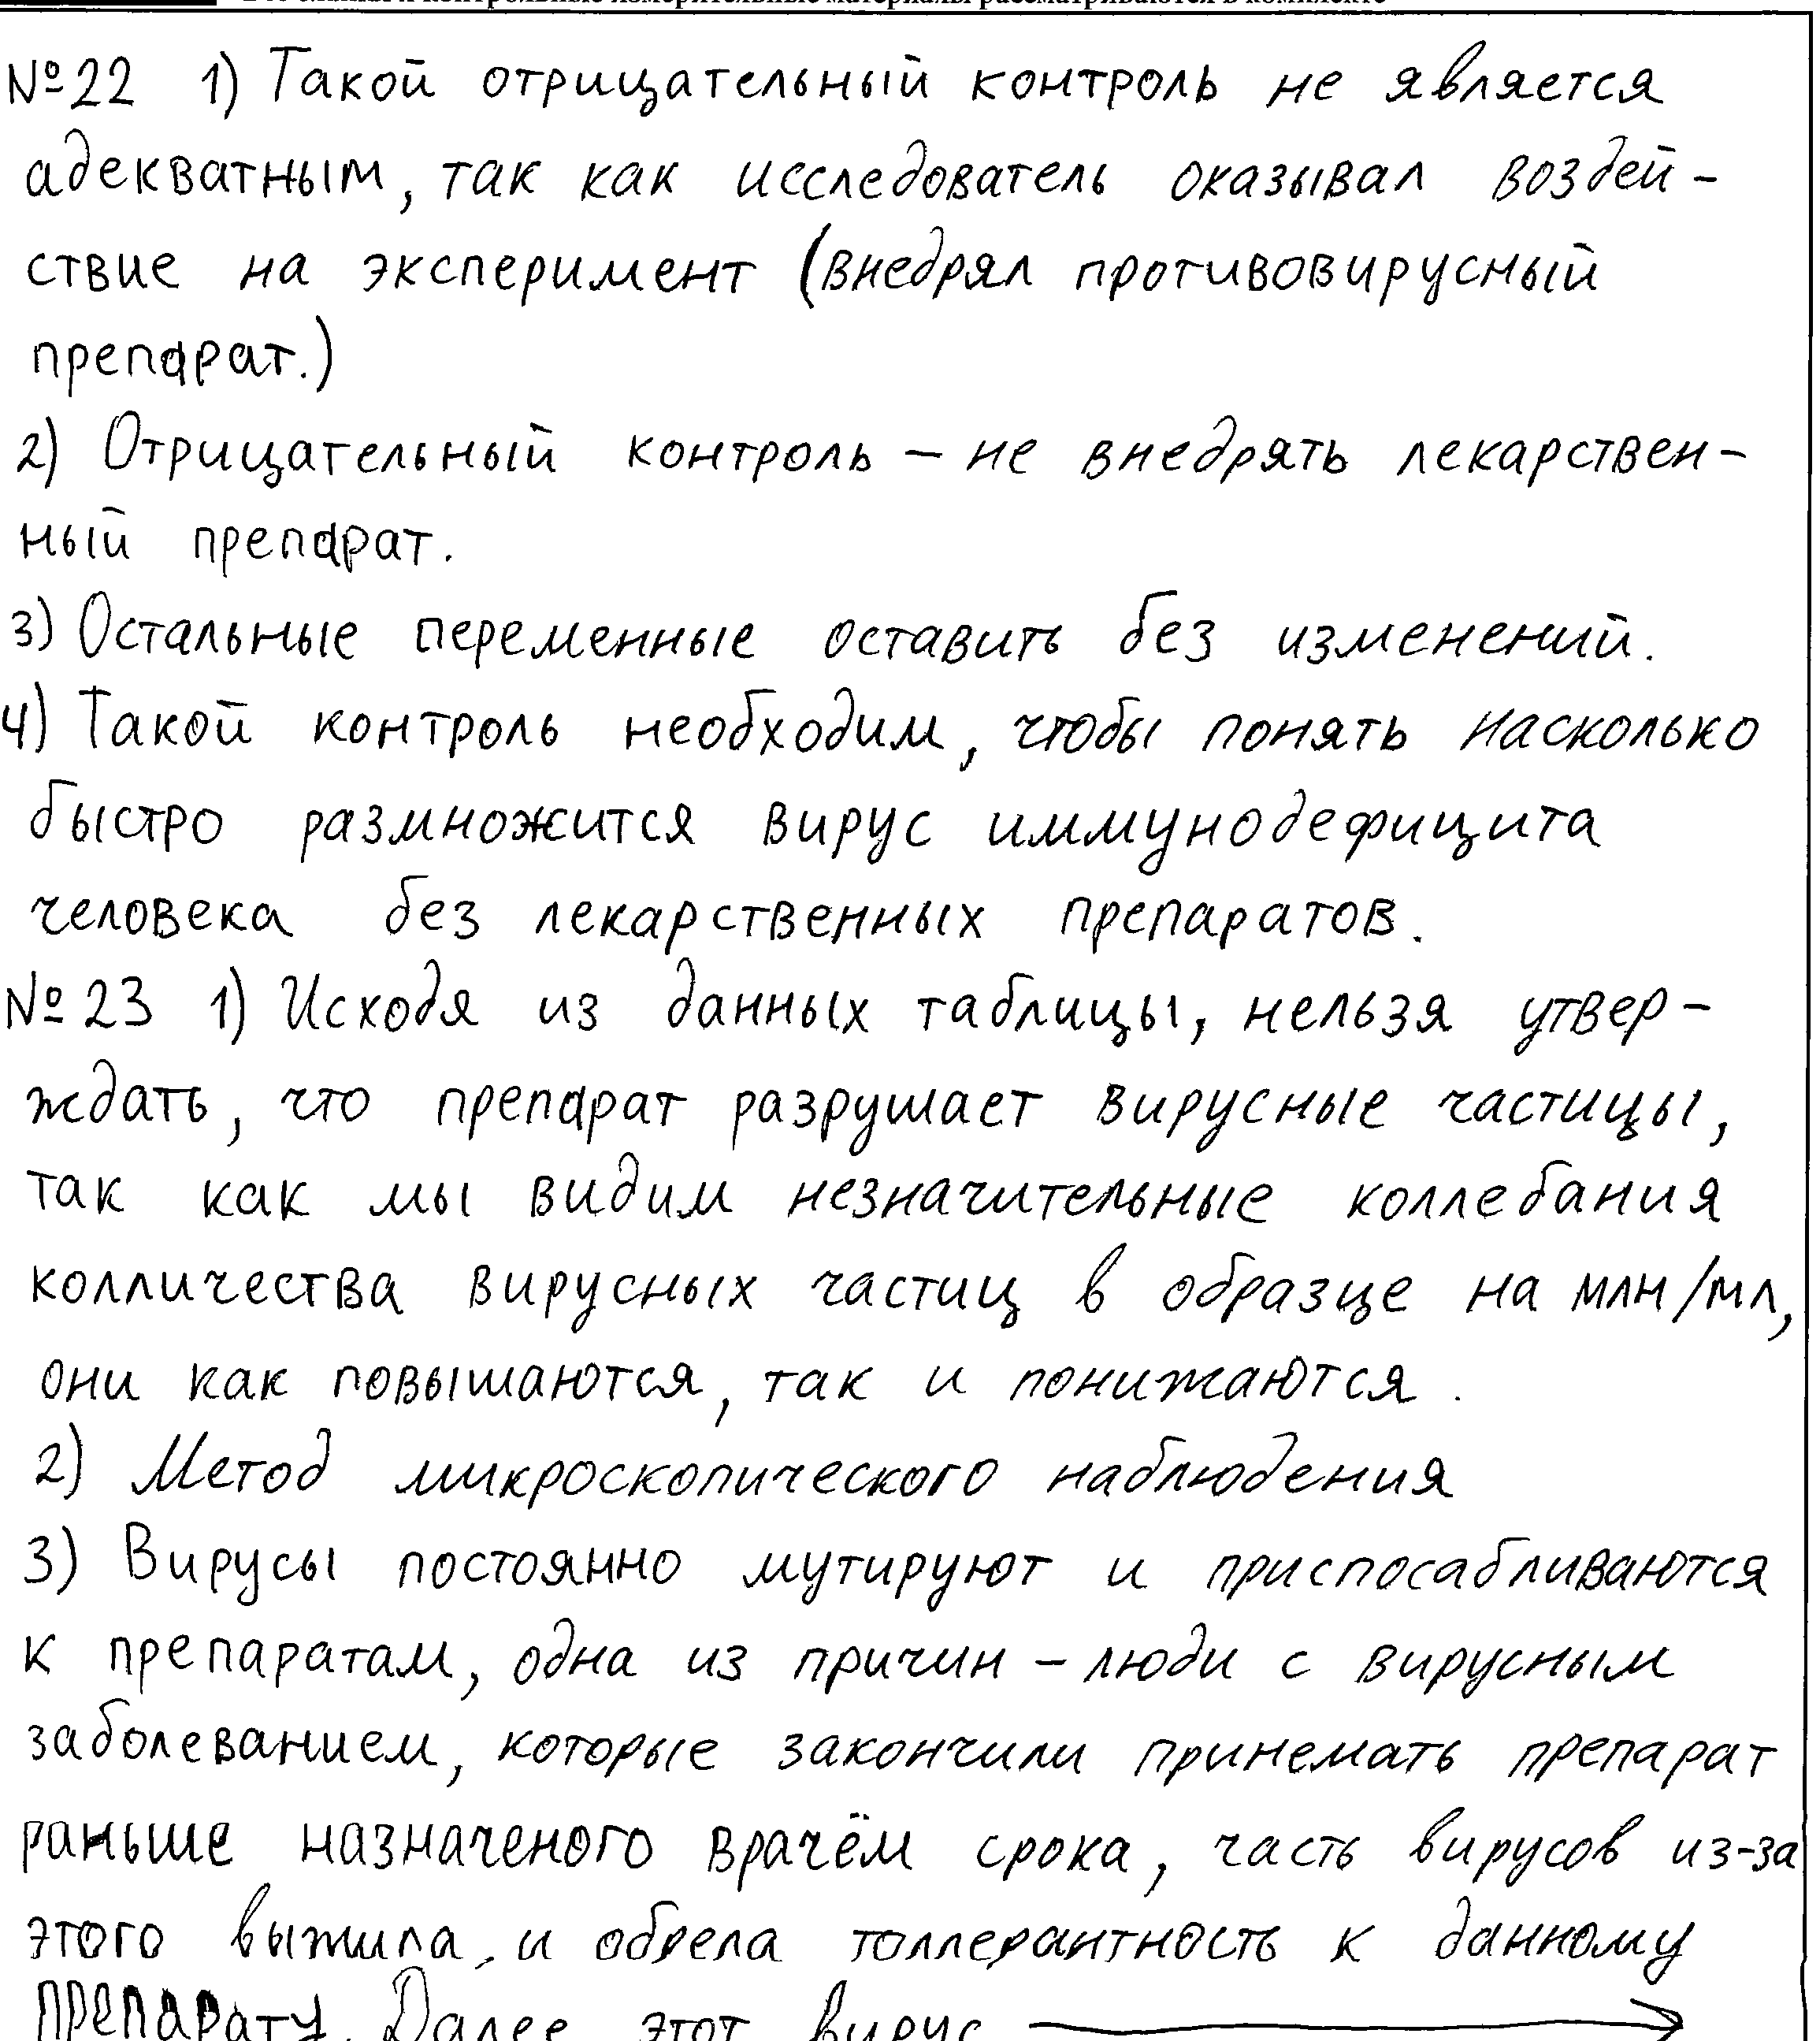 контрольные измерительные материалы рассматриваются в комплекте
№22 1) Такой отрицательный контроль не является
адекватным, так как исследователь оказывал воздей-
ствие на эксперимент (внедрял противовирусный
препарат.)
2) Отрицательный контроль – не внедрять лекарствен-
ный препарат.
3) Остальные переменные оставить без изменений.
4) Такой контроль необходим, чтобы понять насколько
быстро размножится вирус иммунодефицита
человека без лекарственных препаратов.
№23 1) Исходя из данных таблицы, нельзя утвер-
ждать, что препарат разрушает вирусные частицы,
так как мы видим незначительные коллебания
колличества вирусных частиц в образце на млн/мл,
они как повышаются, так и понижаются.
2) Метод микроскопического наблюдения
3) Вирусы постоянно мутируют и приспосабливаются
к препаратам, одна из причин – люди с вирусным
заболеванием, которые закончили принемать препарат
раньше назначеного врачём срока, часть вирусов из-за
этого выжила, и обрела толлерантность к данному
препарату. Далее этот вирус →